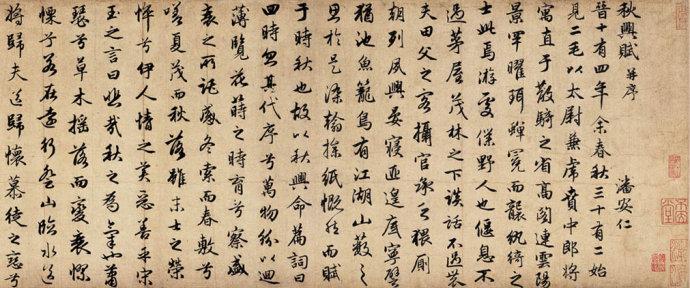 秋興賦 并序
潘安仁
晉十有四年余春秋三十有二始
見二毛以太尉兼虎賁中郎將
寓直于散騎之省高閣連雲陽
景罕曜珥蟬冕而襲紈綺之
士此焉游處僕野人也偃息不
過茅屋茂林之下談話不過農
夫田父之客攝官承乏猥厠
朝列夙興晏寢匪遑底寧譬
猶池魚籠鳥有江湖山藪之
思於是染翰操紙慨然而賦
于時秋也故以秋興命篇詞曰
四時忽其代序兮萬物紛以迴
薄覽花蒔之時育兮察盛
衰之所託感冬索而春敷兮
嗟夏茂而秋落雖末士之榮
悴兮伊人情之美惡善乎宋
玉之言曰悲哉秋之為氣也蕭
瑟兮草木搖落而變衰憭
慄兮若在遠行登山臨水送
將歸夫送歸懷慕徒之戀兮